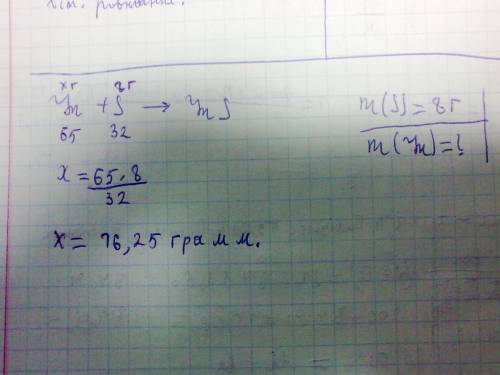 хім. рівняння.
xг 8г
Zn + S → Zn S
65 32
m(S) = 8г
m(Zn) = ?
X = 65 . 8
32
X = 16,25 грамм.